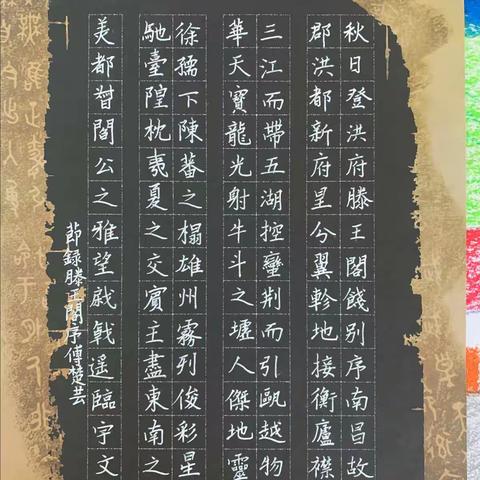 秋日登洪府滕王閣餞別序南昌故
郡洪都新府星分翼軫地接衡廬襟
三江而帶五湖控蠻荊而引甌越物
華天寶龍光射牛斗之墟人傑地靈
徐孺下陳蕃之榻雄州霧列俊彩星
馳臺隍枕夷夏之交賓主盡東南之
美都督閻公之雅望棨戟遙臨宇文
節錄滕王閣序傅楚芸